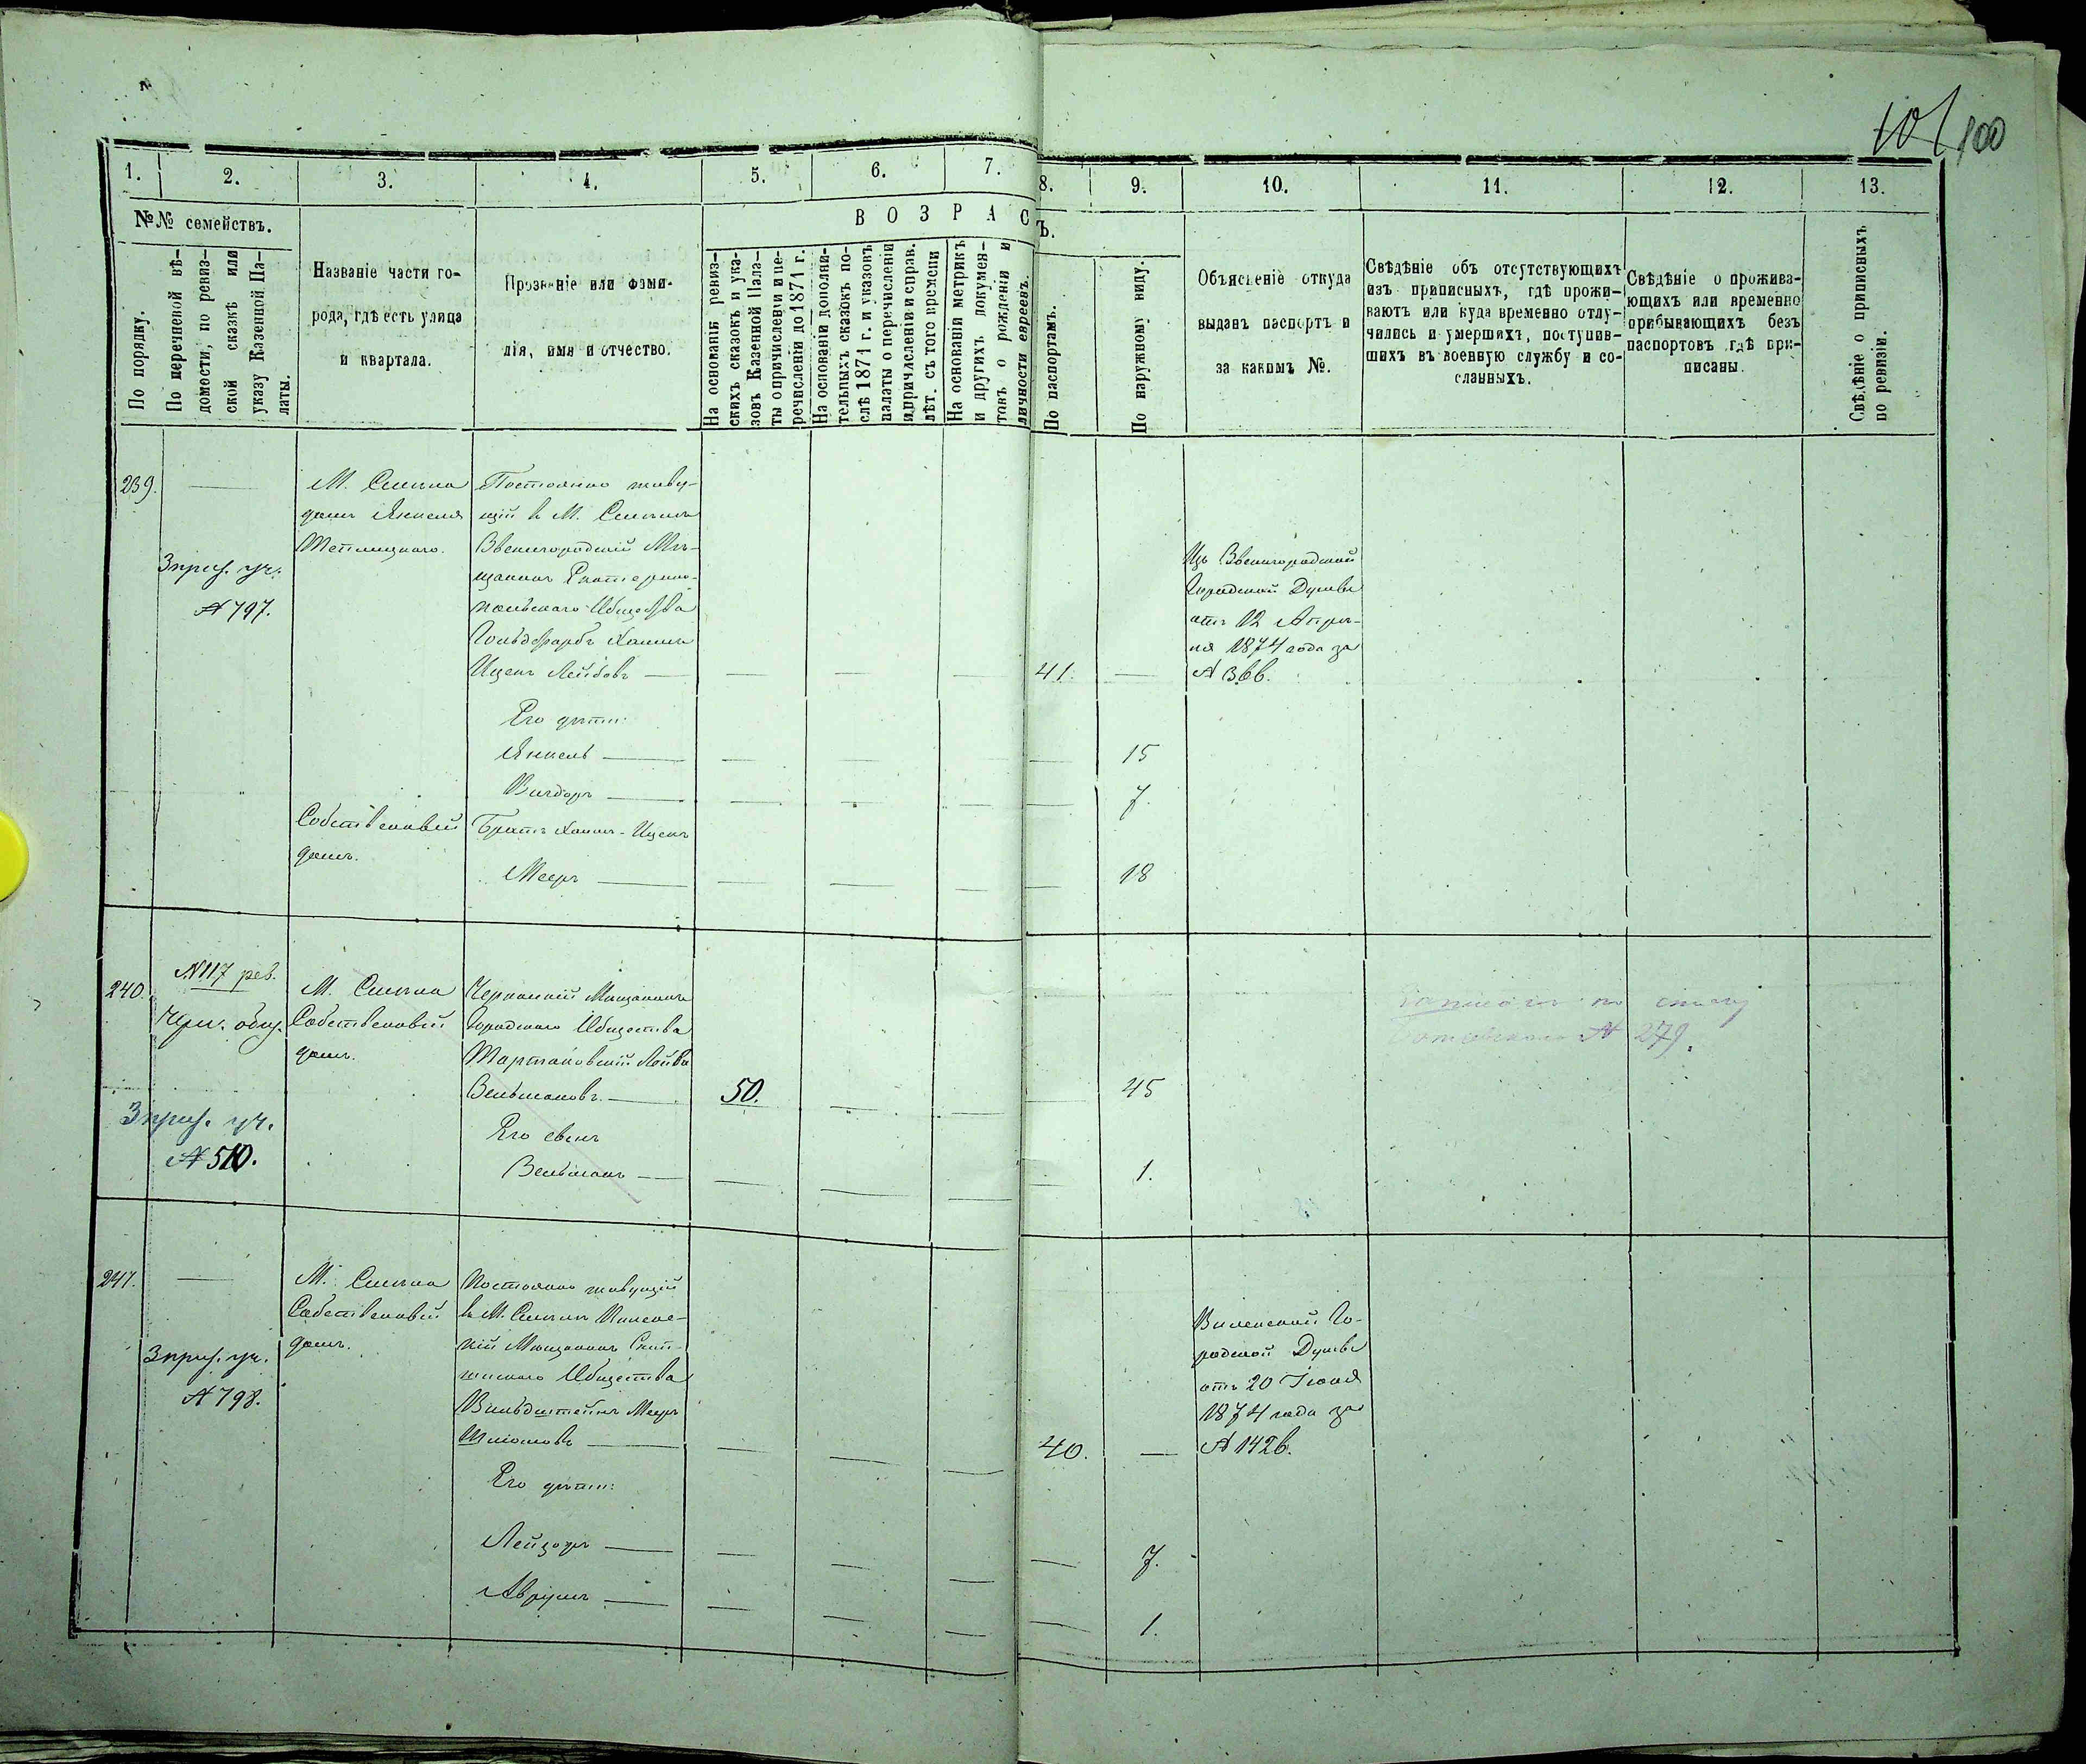 101 100
1. 2. 3. 4. 5. 6. 7. 8. 9. 10. 11. 12. 13.
№№ семействъ.
По порядку.
По перечневой вѣ-
домости, по ревиз-
ской сказкѣ или
указу Казенной Па-
латы.
Названіе части го-
рода, гдѣ есть улица
и квартала.
Прозваніе или фами-
лія, имя и отчество.
ВОЗРАСТЪ.
На основаніи ревиз-
скихъ сказокъ и ука-
зовъ Казенной Пала-
ты о причисленіи и пе-
речисленіи до 1871 г.
На основаніи дополни-
тельныхъ сказокъ по-
слѣ 1871 г. и указовъ
палаты о перечисленіи
и причисленіи и справ.
лѣт. съ того времени
На основаніи метрикъ
и другихъ докумен-
товъ о рожденіи и
личности евреевъ.
По паспортамъ.
По наружному виду.
Объясненіе откуда
выданъ паспортъ и
за какимъ №.
Свѣдѣніе объ отсутствующихъ
изъ приписныхъ, гдѣ прожи-
ваютъ или куда временно отлу-
чились и умершихъ, поступив-
шихъ въ военную службу и со-
сланныхъ.
Свѣдѣніе о прожива-
ющихъ или временно
прибывающихъ безъ
паспортовъ гдѣ при-
писаны.
Свѣдѣніе о приписныхъ
по ревизіи.
239.
3 приз. уч.
№ 797.
М. Смѣла
домъ Янкеля
Теплицкаго.
Постоянно живу-
щій в М. Смѣлѣ
Звенигородскій Мѣ-
щанинъ Екатерино-
польскаго Общества
Гольдфарбъ Хаимъ
Ицекъ Лейбовъ
41.
Изъ Звенигородской
Городской Думы
отъ 12 Апрѣ-
ля 1874 года за
№ 366.
Его дѣти:
Янкель 15
Вигдоръ 7.
Собственный
домъ.
Братъ Хаимъ-Ицека
Мееръ 18
240.
№ 117 рев.
Чер. общ.
3 приз. уч.
№ 510.
М. Смѣла
Собственный
домъ.
Черкаскій Мѣщанинъ
Городского Общества
Тартаковскій Лейба
Вельмановъ 50. 45
Его сынъ
Вельманъ 1.
Записанъ по списку
№ 279.
241.
3 приз. уч.
№ 798.
М. Смѣла
Собственный
домъ.
Постоянно живущій
в М. Смѣлѣ
Мѣщанинъ
Общества
Вильдштейнъ Мееръ
Шломовъ
40.
Виленской Го-
родской Думы
отъ 20 Іюня
1874 года за
№ 1426.
Его дѣти:
Лейзоръ 7.
Аврумъ 1.